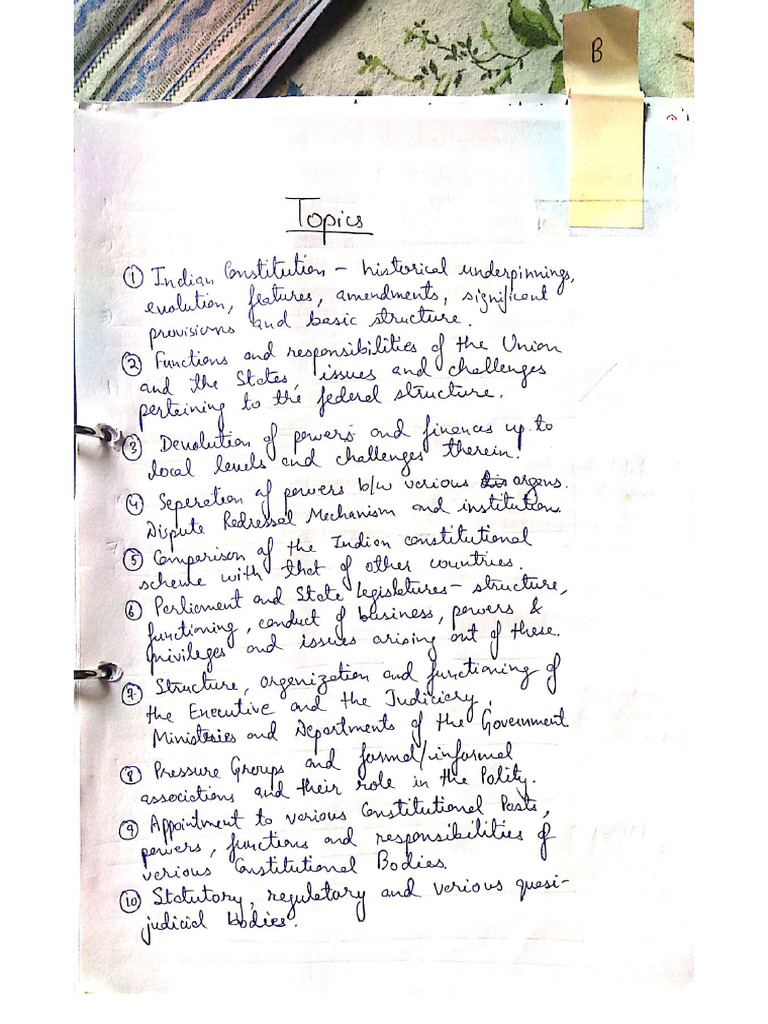 B
Topics
① Indian Constitution - historical underpinnings,
evolution, features, amendments, significant
provisions and basic structure.
② Functions and responsibilities of the Union
and the States, issues and challenges
pertaining to the federal structure.
③ Devolution of powers and finances up to
local levels and challenges therein.
④ Seperation of powers b/w various organs.
Dispute Redressal Mechanism and institution.
⑤ Comparison of the Indian constitutional
scheme with that of other countries.
⑥ Parliament and State legislatures - structure,
functioning, conduct of business, powers &
privileges and issues arising out of these.
⑦ Structure, organization and functioning of
the Executive and the Judiciary,
Ministries and Departments of the Government
⑧ Pressure Groups and formal/informal
associations and their role in the Polity.
⑨ Appointment to various Constitutional Posts,
powers, functions and responsibilities of
various Constitutional Bodies.
⑩ Statutory, regulatory and various quasi-
judicial bodies.